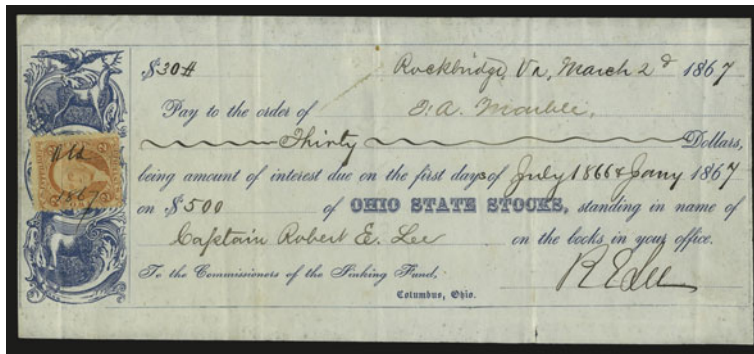 $30# Rockbridge, Va, March 2d 1867
Pay to the order of
Thirty Dollars,
being amount of interest due on the first days of July 1866 & Jany 1867
on $500 of OHIO STATE STOCKS, standing in name of
Captain Robert E. Lee on the books in your office.
To the Commissioners of the Sinking Fund,
Columbus, Ohio.
R E Lee
1867